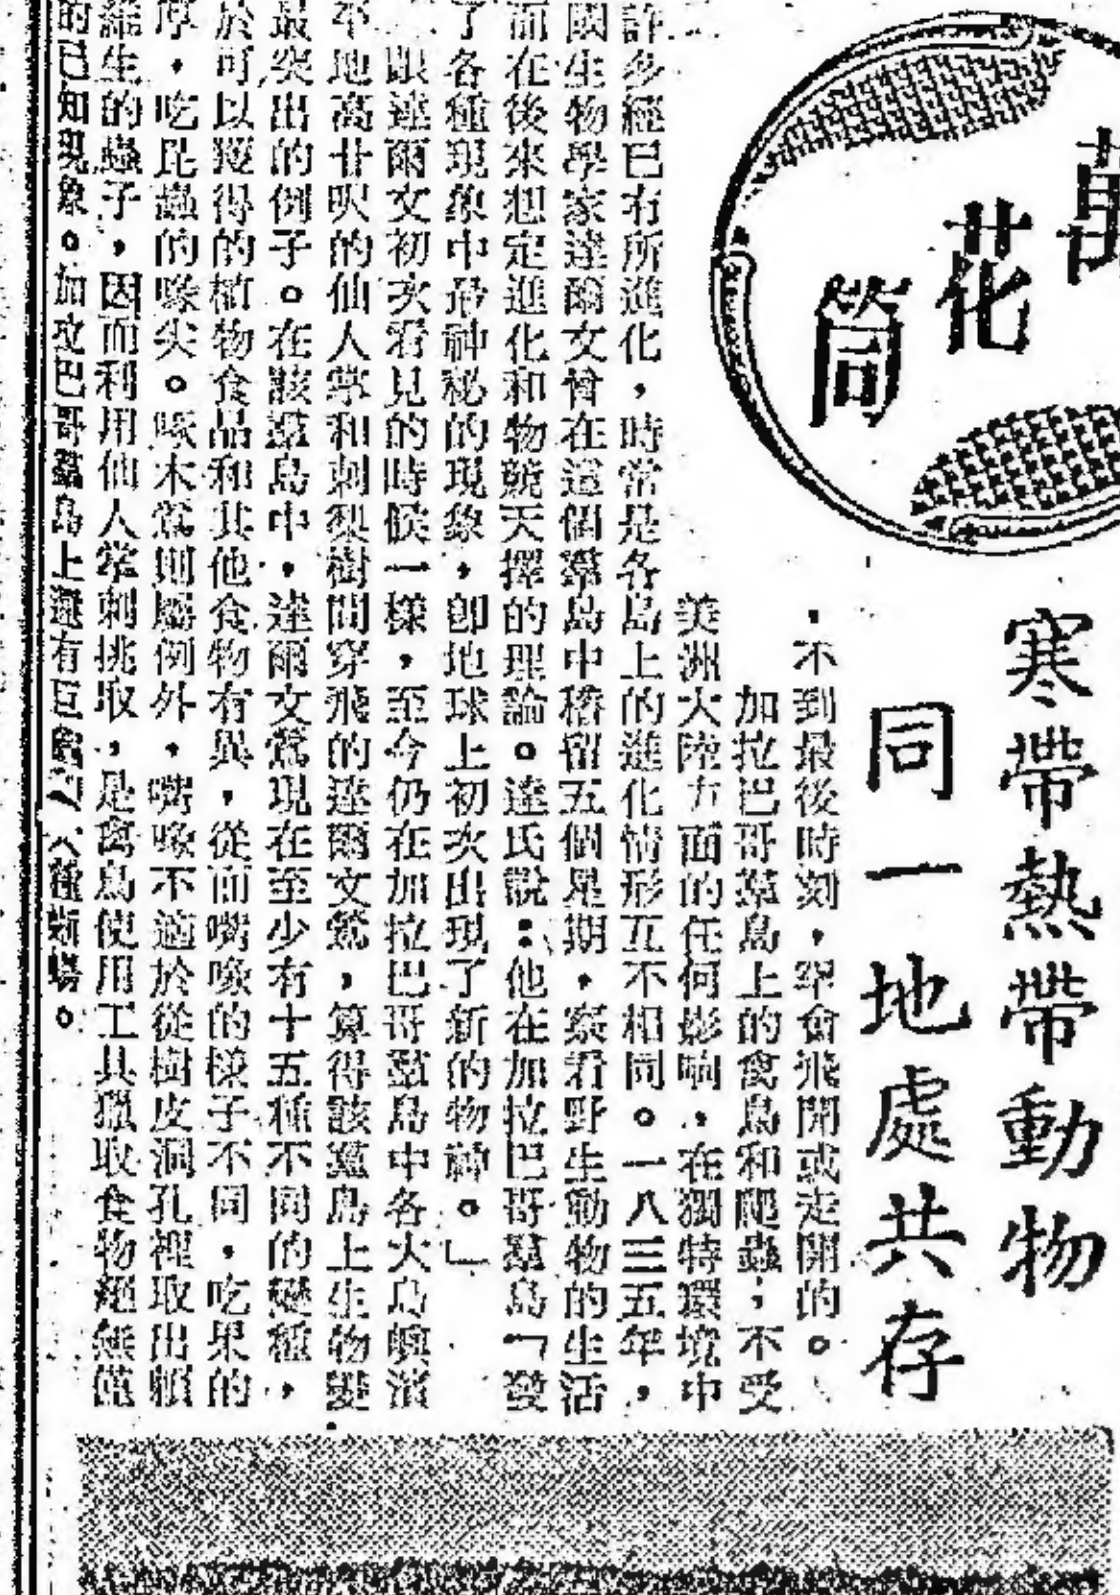 萬花筒
寒帶熱帶動物
同一地處共存
，不到最後時刻，罕會飛開或走開的。
加拉巴哥羣島上的禽鳥和爬蟲，不受
美洲大陸方面的任何影响，在獨特環境中
許多經已有所進化，時常是各島上的進化情形互不相同。一八三五年，
國生物學家達爾文曾在這個羣島中稽留五個星期，察看野生動物的生活
而在後來想定進化和物競天擇的理論。達氏說：他在加拉巴哥羣島「發
了各種現象中最神秘的現象，卽地球上初次出現了新的物神。」
跟達爾文初次看見的時候一樣，至今仍在加拉巴哥羣島中各大島嶼濱
平地高廿呎的仙人掌和刺梨樹間穿飛的達爾文鶯，算得該羣島上生物變
最突出的例子。在該羣島中，達爾文鶯現在至少有十五種不同的變種，
於可以獲得的植物食品和其他食物有異，從而嘴喙的樣子不同，吃果的
厚，吃昆蟲的喙尖。啄木鶯則屬例外，嘴喙不適於從樹皮洞孔裡取出賴
維生的蟲子，因而利用仙人掌刺挑取，是禽鳥使用工具獵取食物絕無僅
的已知現象。加拉巴哥羣島上還有巨 種蜥蜴。